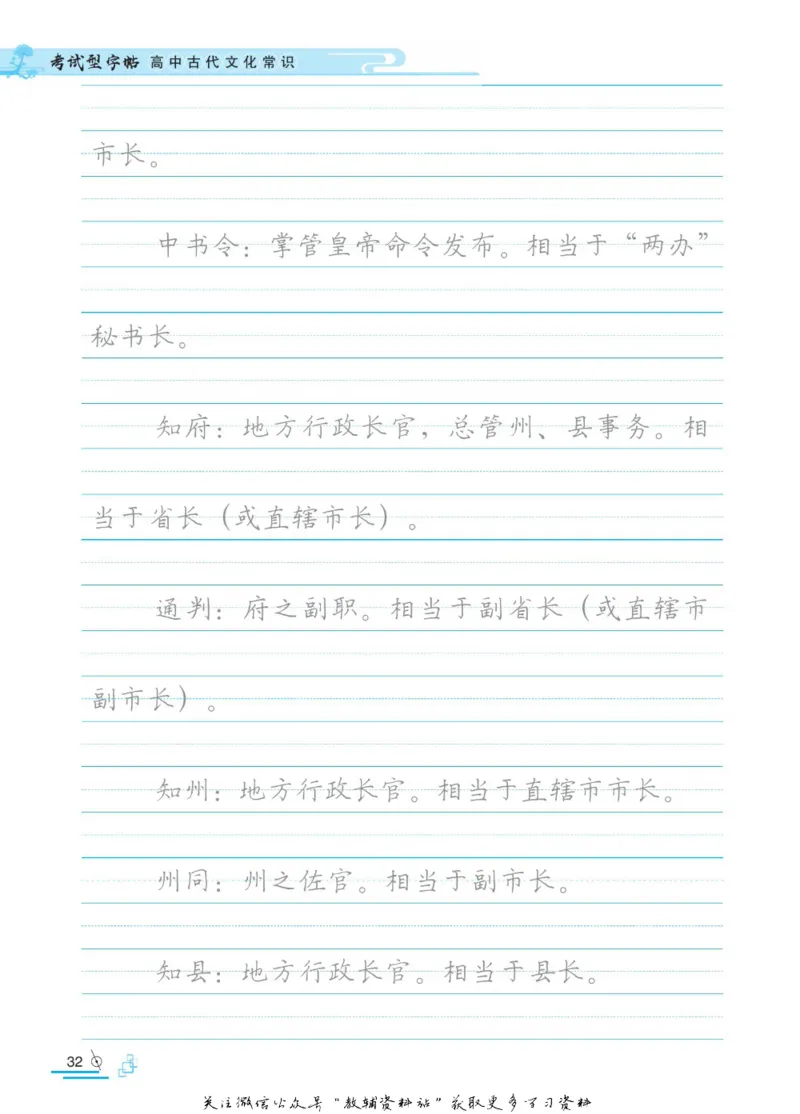 考试型字帖 高中古代文化常识
市长。
中书令：掌管皇帝命令发布。相当于“两办”
秘书长。
知府：地方行政长官，总管州、县事务。相
当于省长（或直辖市长）。
通判：府之副职。相当于副省长（或直辖市
副市长）。
知州：地方行政长官。相当于直辖市市长。
州同：州之佐官。相当于副市长。
知县：地方行政长官。相当于县长。
32
关注微信公众号“教辅资料站”获取更多学习资料